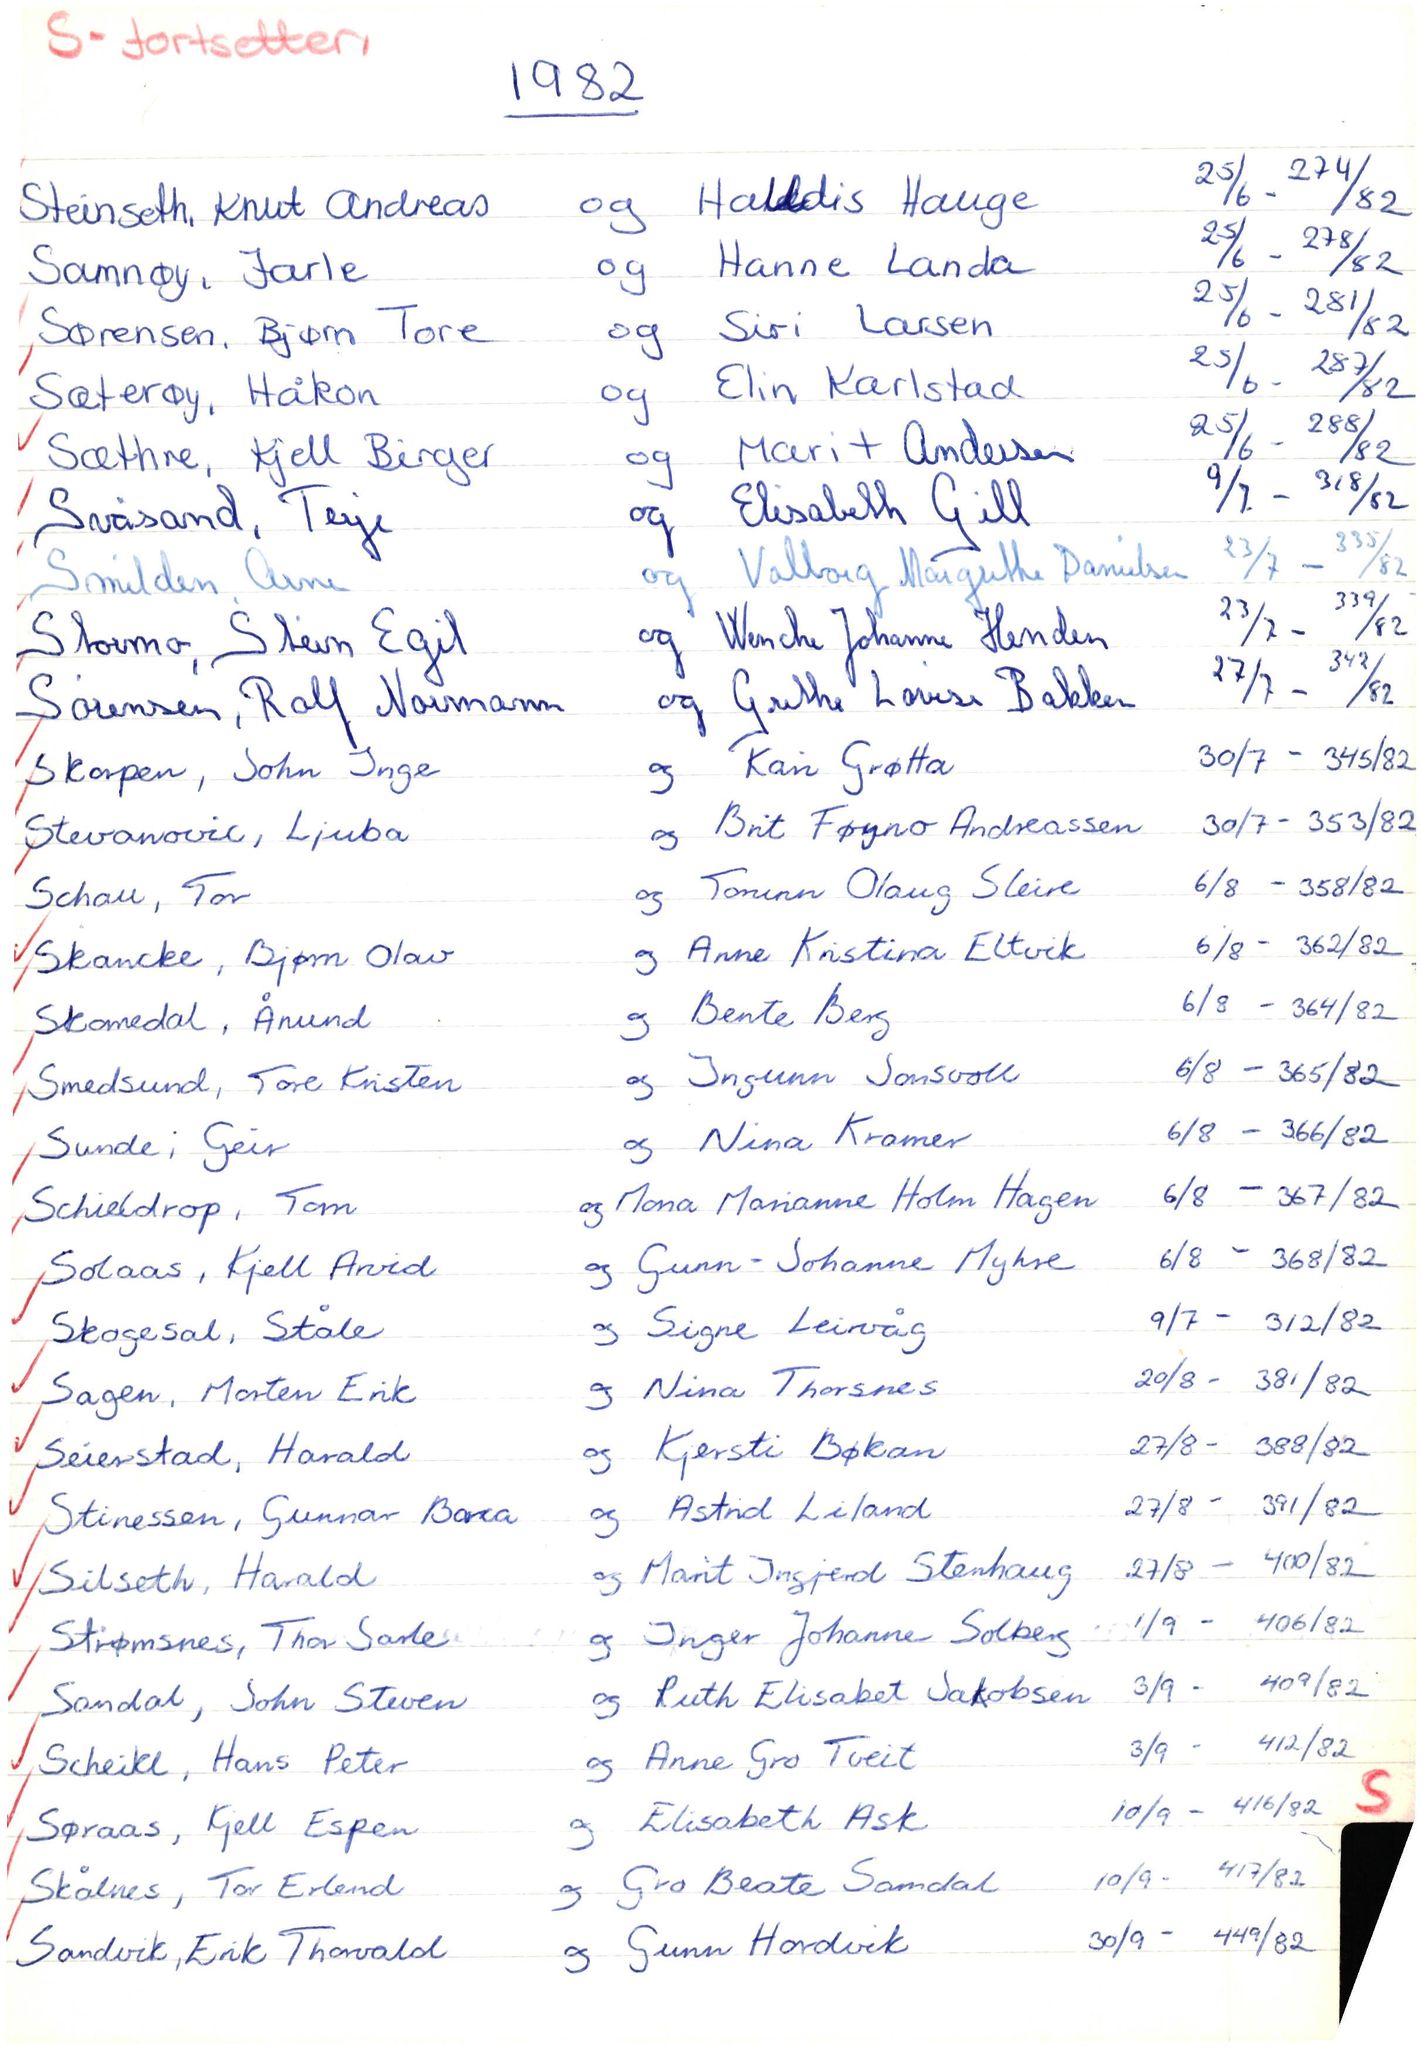 S- fortsetter
1982
Steinseth, Knut Andreas og Halldis Hauge 25/6 - 274/82
Samnøy, Jarle og Hanne Landa 25/6 - 278/82
Sørensen, Bjørn Tore og Siri Larsen 25/6 - 281/82
Sæterøy, Håkon og Elin Karlstad 25/6 - 287/82
Sæthre, Kjell Birger og Marit Andersen 25/6 - 288/82
Svåsand, Terje og Elisabeth Gill 9/7 - 318/82
Smilden, Arne og Valborg Margrethe Danielsen 23/7 - 335/82
Stormo, Stein Egil og Wenche Johanne Henden 23/7 - 339/82
Sörensen, Rolf Normann og Grethe Lovise Bakken 27/7 - 342/82
Skorpen, John Inge og Kari Grøtta 30/7 - 345/82
Stevanovic, Ljuba og Brit Føyno Andreassen 30/7 - 353/82
Schau, Tor og Torunn Olaug Sleire 6/8 - 358/82
Skancke, Bjørn Olav og Anne Kristina Eltvik 6/8 - 362/82
Skomedal, Ånund og Bente Berg 6/8 - 364/82
Smedsund, Tore Kristen og Ingunn Jonsvoll 6/8 - 365/82
Sunde, Geir og Nina Kramer 6/8 - 366/82
Schieldrop, Tom og Mona Marianne Holm Hagen 6/8 - 367/82
Solaas, Kjell Arvid og Gunn-Johanne Myhre 6/8 - 368/82
Skogesal, Ståle og Signe Leirvåg 9/7 - 312/82
Sagen, Morten Erik og Nina Thorsnes 20/8 - 381/82
Seierstad, Harald og Kjersti Bøkan 27/8 - 388/82
Stinessen, Gunnar Borea og Astrid Liland 27/8 - 391/82
Silseth, Harald og Marit Ingjerd Stenhaug 27/8 - 400/82
Strømsnes, Thor Jarle og Inger Johanne Solberg 1/9 - 406/82
Sandal, John Steven og Ruth Elisabet Jakobsen 3/9 - 409/82
Scheikl, Hans Peter og Anne Gro Tveit 3/9 - 412/82
S
Søraas, Kjell Espen og Elisabeth Ask 10/9 - 416/82
Skålnes, Tor Erlend og Gro Beate Samdal 10/9 - 417/82
Sandvik, Erik Thorvald og Gunn Hordvik 30/9 - 449/82